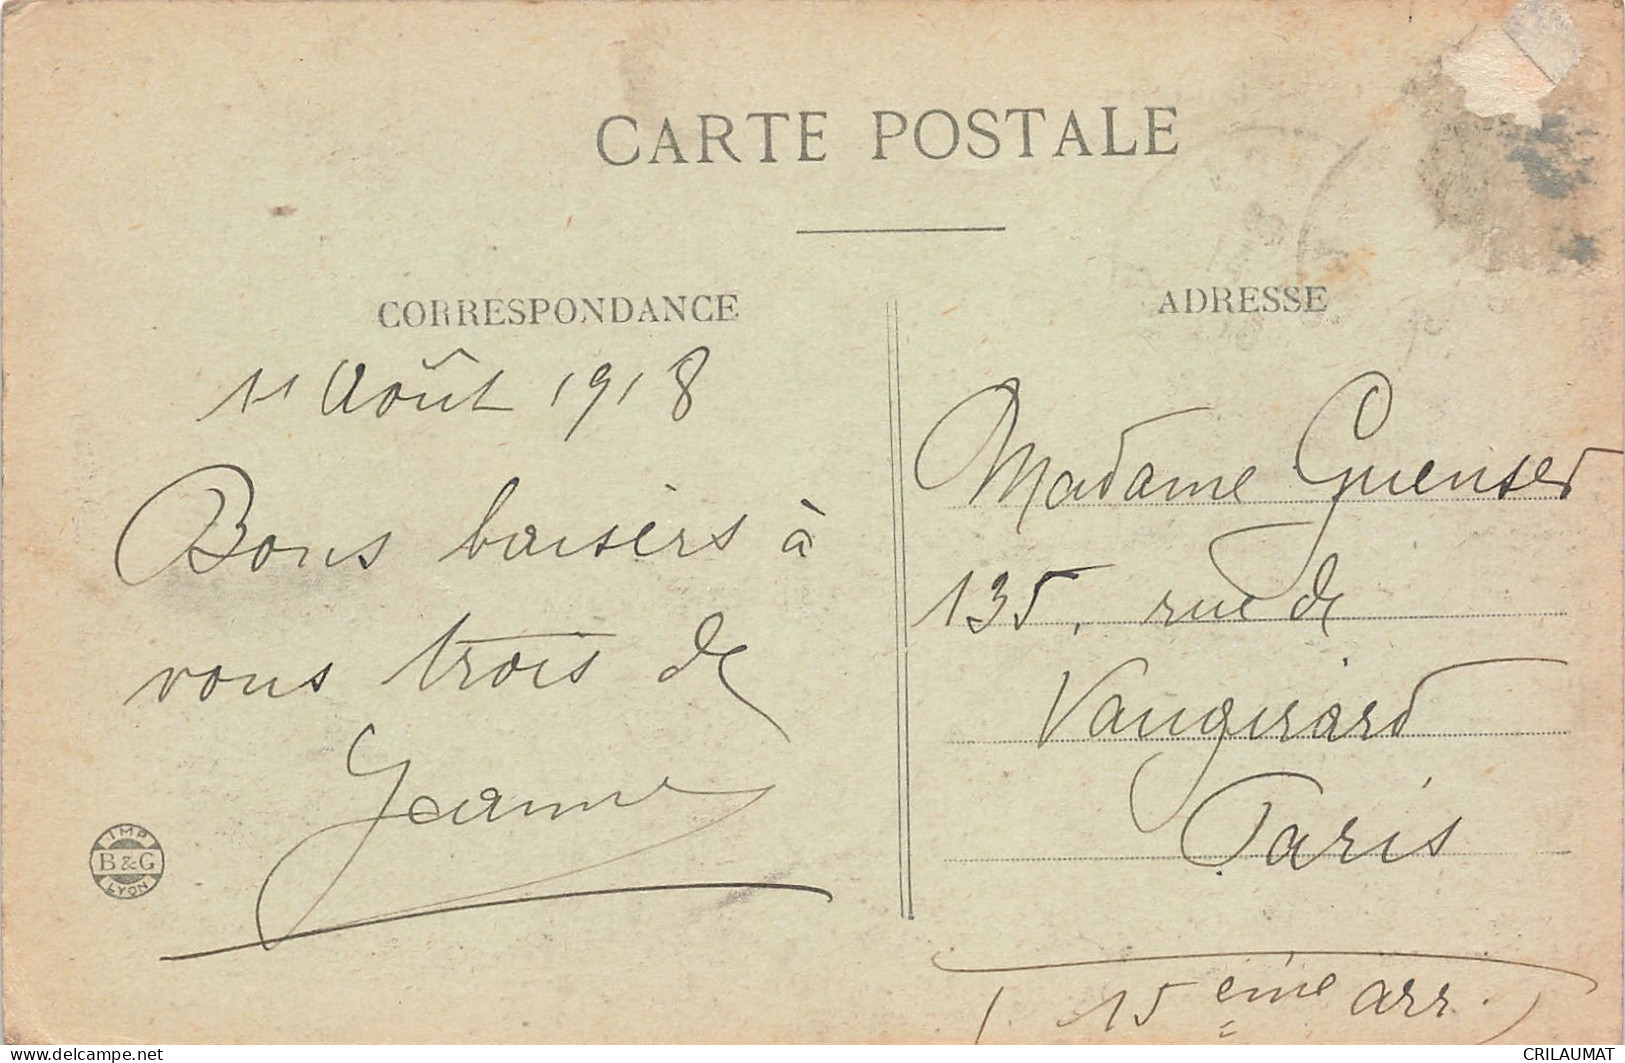 CARTE POSTALE
CORRESPONDANCE
11 Août 1918
Bons baisers à
vous trois de
Jeanne
IMP
B & G
LYON
ADRESSE
Madame
135, rue de
Vaugirard
Paris
(15 ème arr.)
delcampe.net
CRILAUMAT